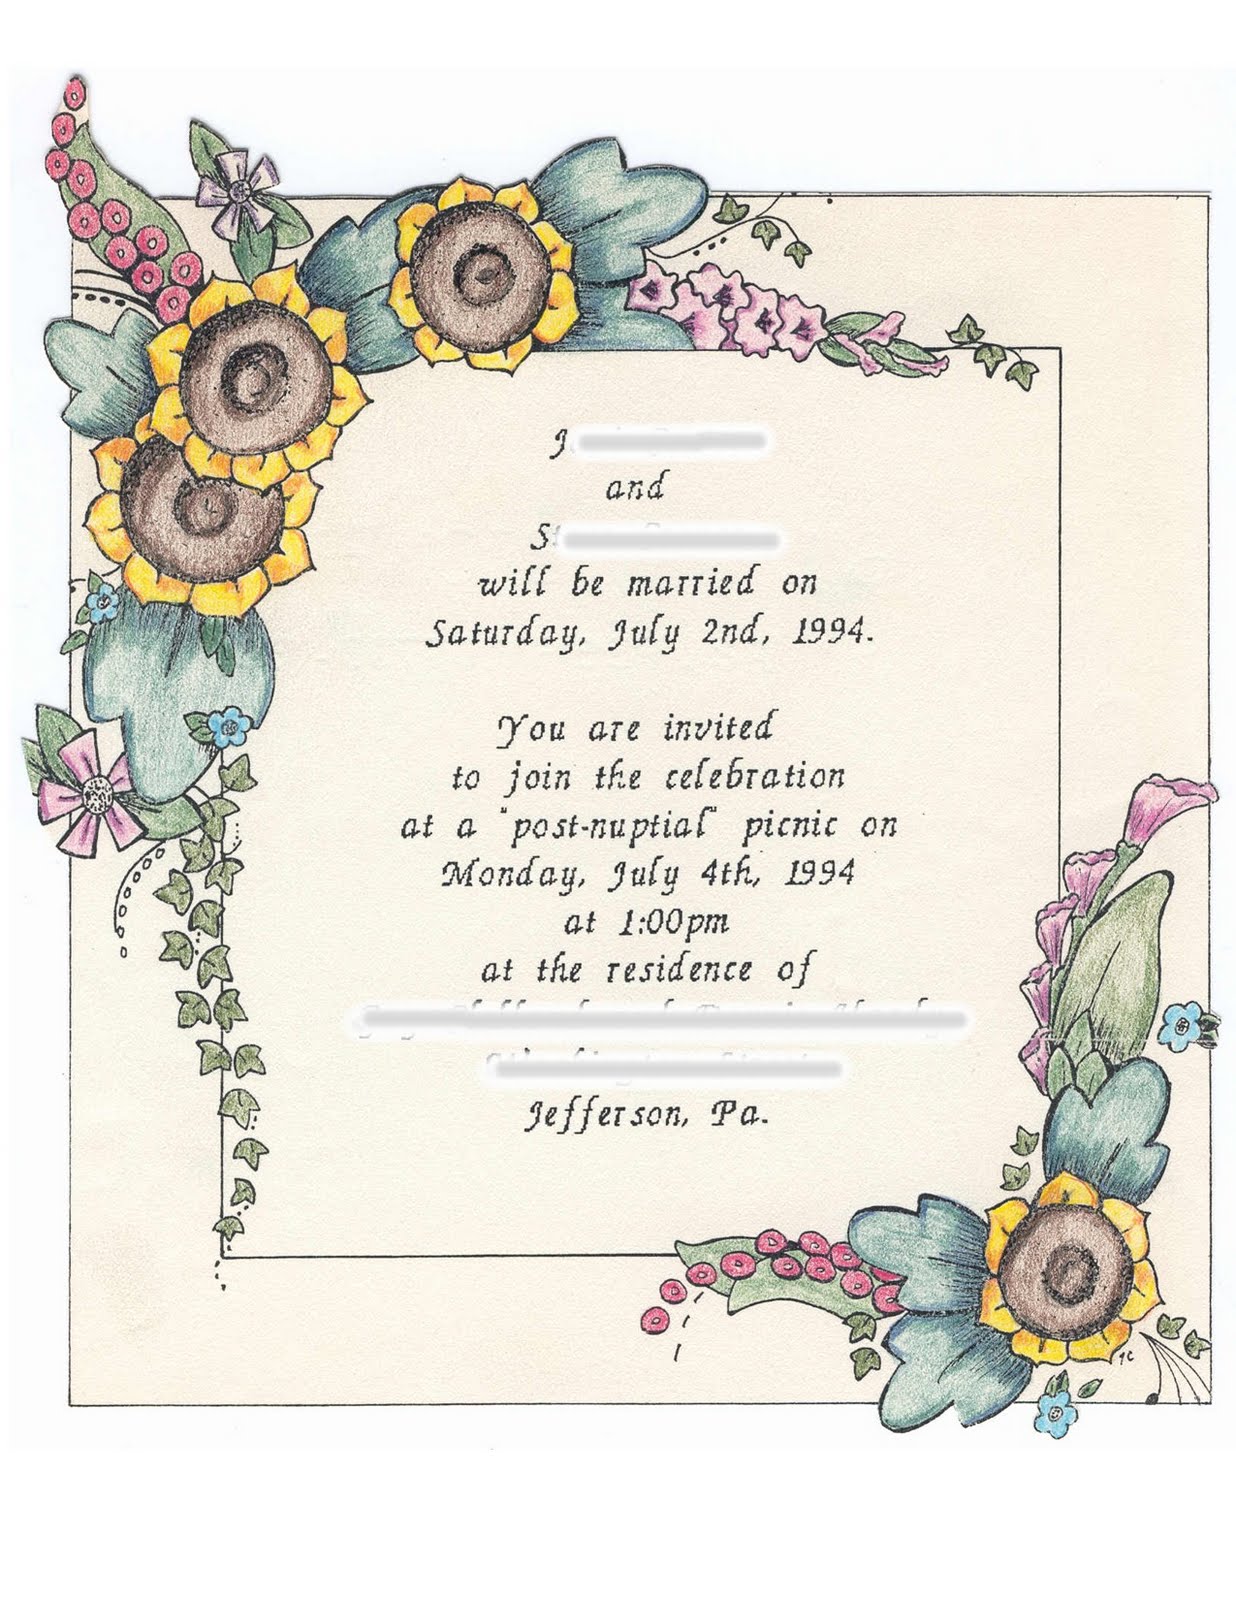 J
and
S
will be married on
Saturday, July 2nd, 1994.
You are invited
to join the celebration
at a "post-nuptial" picnic on
Monday, July 4th, 1994
at 1:00pm
at the residence of
Jefferson, Pa.
JC